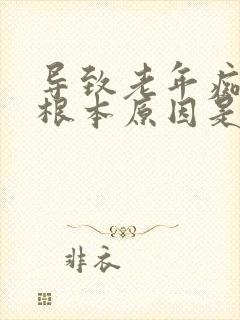 导致老年痴
根本原因是
非衣